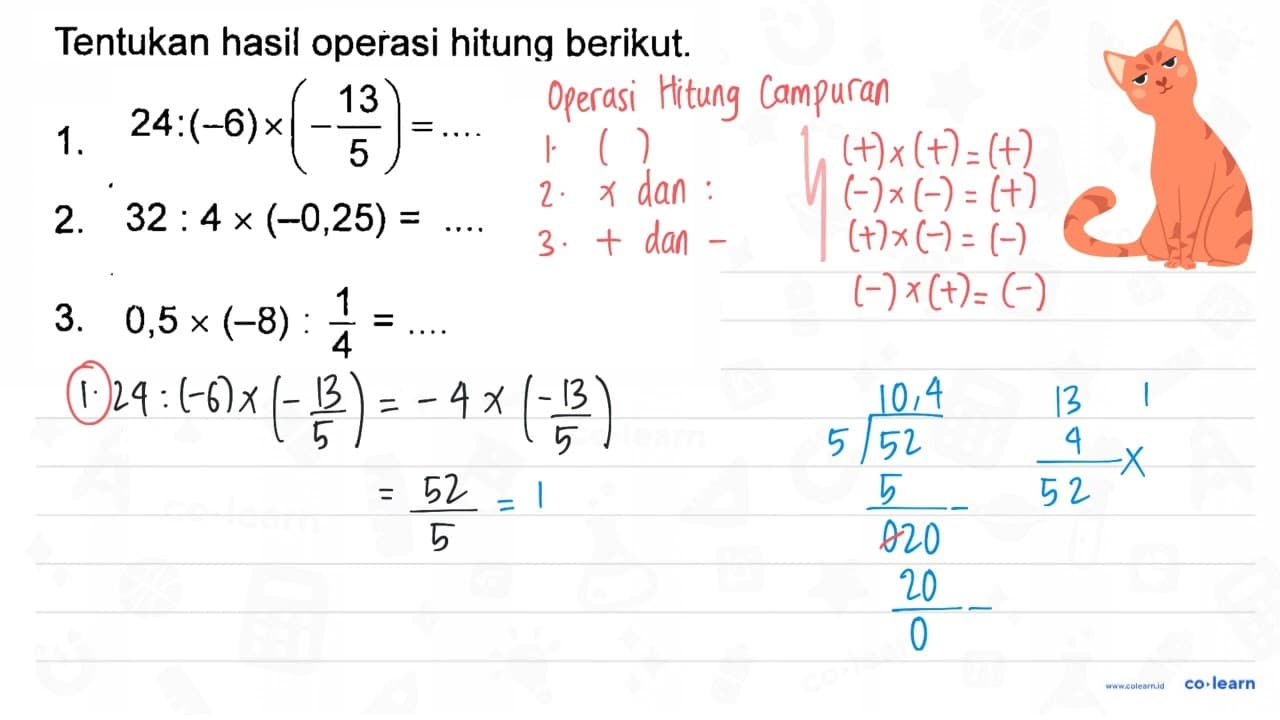 Tentukan hasil operasi hitung berikut.
1. 24:(–6)×(–13/5)=....
2. 32 : 4 × (–0,25) = ....
3. 0,5 × (–8) : 1/4 = ....
Operasi Hitung Campuran
1. ( )
2. x dan :
3. + dan –
(+)×(+)=(+)
(–)×(–)=(+)
(+)×(–)=(–)
(–)×(+)=(–)
1. 24:(–6)×(–13/5) = –4 × (–13/5)
= 52/5 = 1
10,4
5 52
5 –
020
20 –
0
13 1
4 ×
52
www.colearn.id co·learn